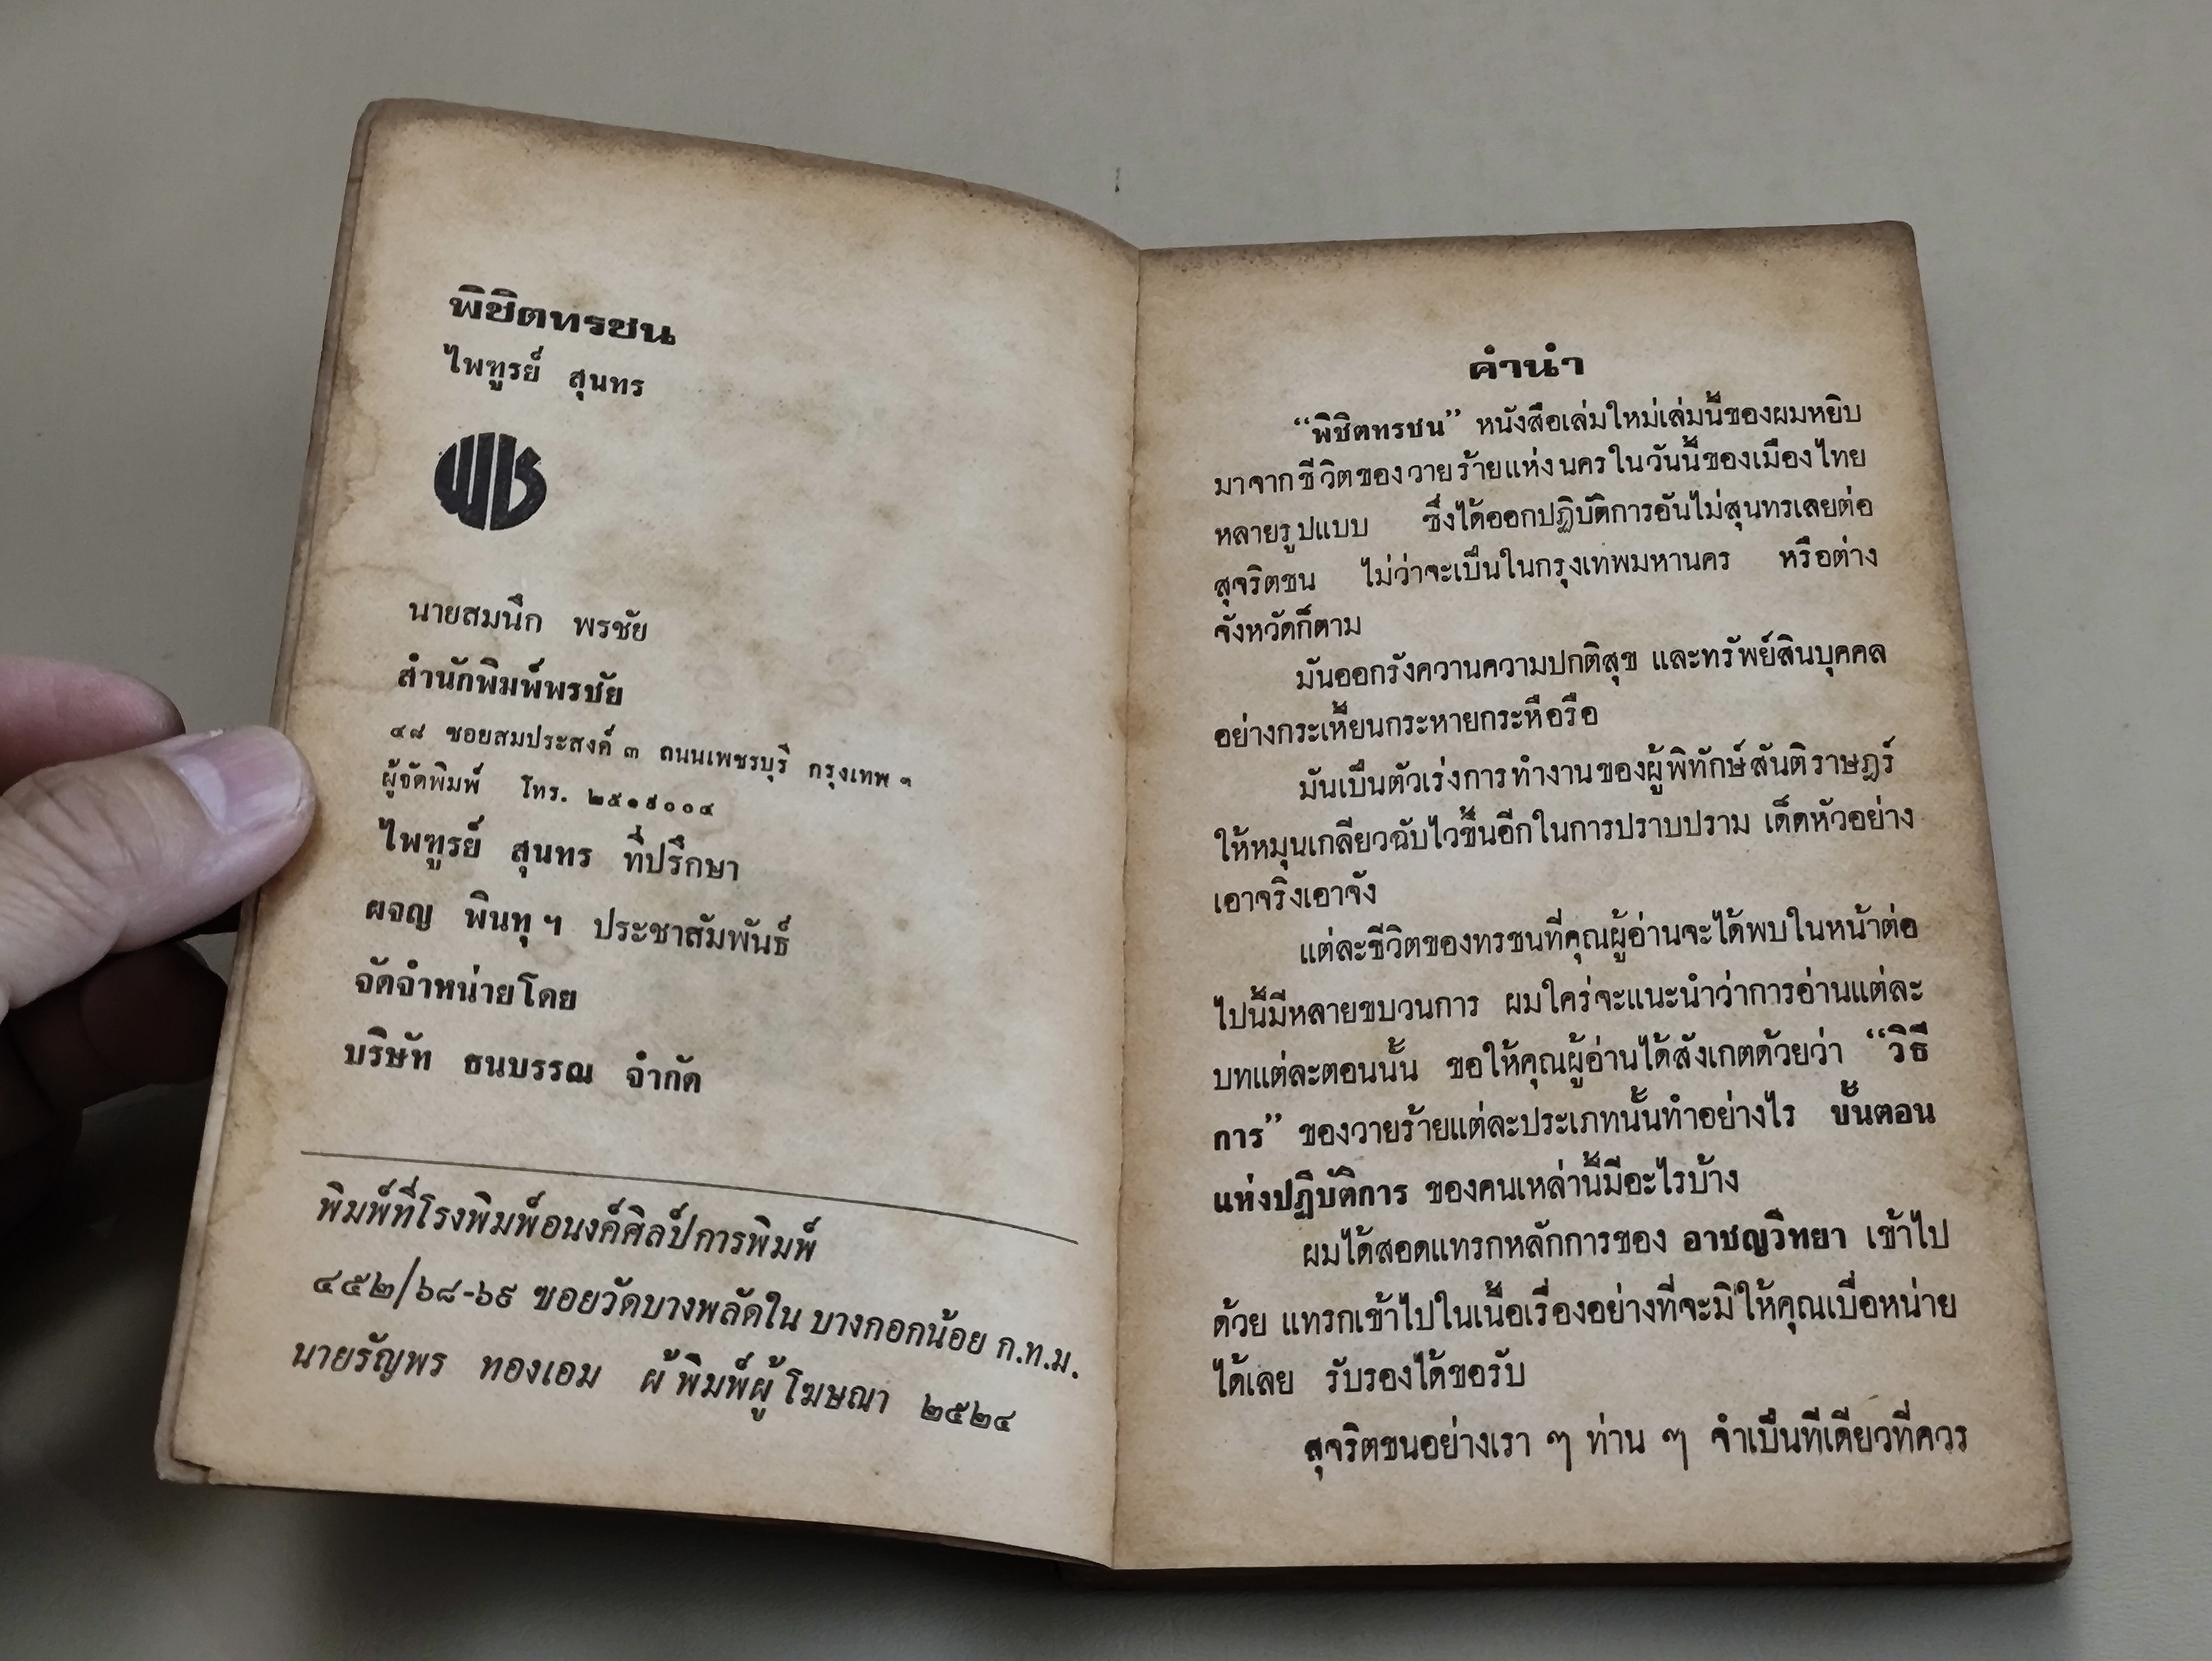 พิชิตทรชน
ไพฑูรย์ สุนทร
พร
นายสมนึก พรชัย
สำนักพิมพ์พรชัย
๔๘ ซอยสมประสงค์ ๓ ถนนเพชรบุรี กรุงเทพ ฯ
ผู้จัดพิมพ์ โทร. ๒๕๑๙๐๐๔
ไพฑูรย์ สุนทร ที่ปรึกษา
ผจญ พินทุฯ ประชาสัมพันธ์
จัดจำหน่ายโดย
บริษัท ธนบรรณ จำกัด
พิมพ์ที่โรงพิมพ์อนงค์ศิลป์การพิมพ์
๔๕๒/๖๘-๖๙ ซอยวัดบางพลัดใน บางกอกน้อย ก.ท.ม.
นายรัญพร ทองเอม ผู้พิมพ์ผู้โฆษณา ๒๕๒๔
คำนำ
“พิชิตทรชน” หนังสือเล่มใหม่เล่มนี้ของผมหยิบ
มาจากชีวิตของวายร้ายแห่งนครในวันนี้ของเมืองไทย
หลายรูปแบบ ซึ่งได้ออกปฏิบัติการอันไม่สุนทรเลยต่อ
สุจริตชน ไม่ว่าจะเป็นในกรุงเทพมหานคร หรือต่าง
จังหวัดก็ตาม
มันออกรังควานความปกติสุข และทรัพย์สินบุคคล
อย่างกระเหี้ยนกระหายกระหือรือ
มันเป็นตัวเร่งการทำงานของผู้พิทักษ์สันติราษฎร์
ให้หมุนเกลียวฉับไวขึ้นอีกในการปราบปราม เด็ดหัวอย่าง
เอาจริงเอาจัง
แต่ละชีวิตของทรชนที่คุณผู้อ่านจะได้พบในหน้าต่อ
ไปนี้มีหลายขบวนการ ผมใคร่จะแนะนำว่าการอ่านแต่ละ
บทแต่ละตอนนั้น ขอให้คุณผู้อ่านได้สังเกตด้วยว่า “วิธี
การ” ของวายร้ายแต่ละประเภทนั้นทำอย่างไร ขั้นตอน
แห่งปฏิบัติการ ของคนเหล่านี้มีอะไรบ้าง
ผมได้สอดแทรกหลักการของ อาชญวิทยา เข้าไป
ด้วย แทรกเข้าไปในเนื้อเรื่องอย่างที่จะมิให้คุณเบื่อหน่าย
ได้เลย รับรองได้ขอรับ
สุจริตชนอย่างเรา ๆ ท่าน ๆ จำเป็นทีเดียวที่ควร